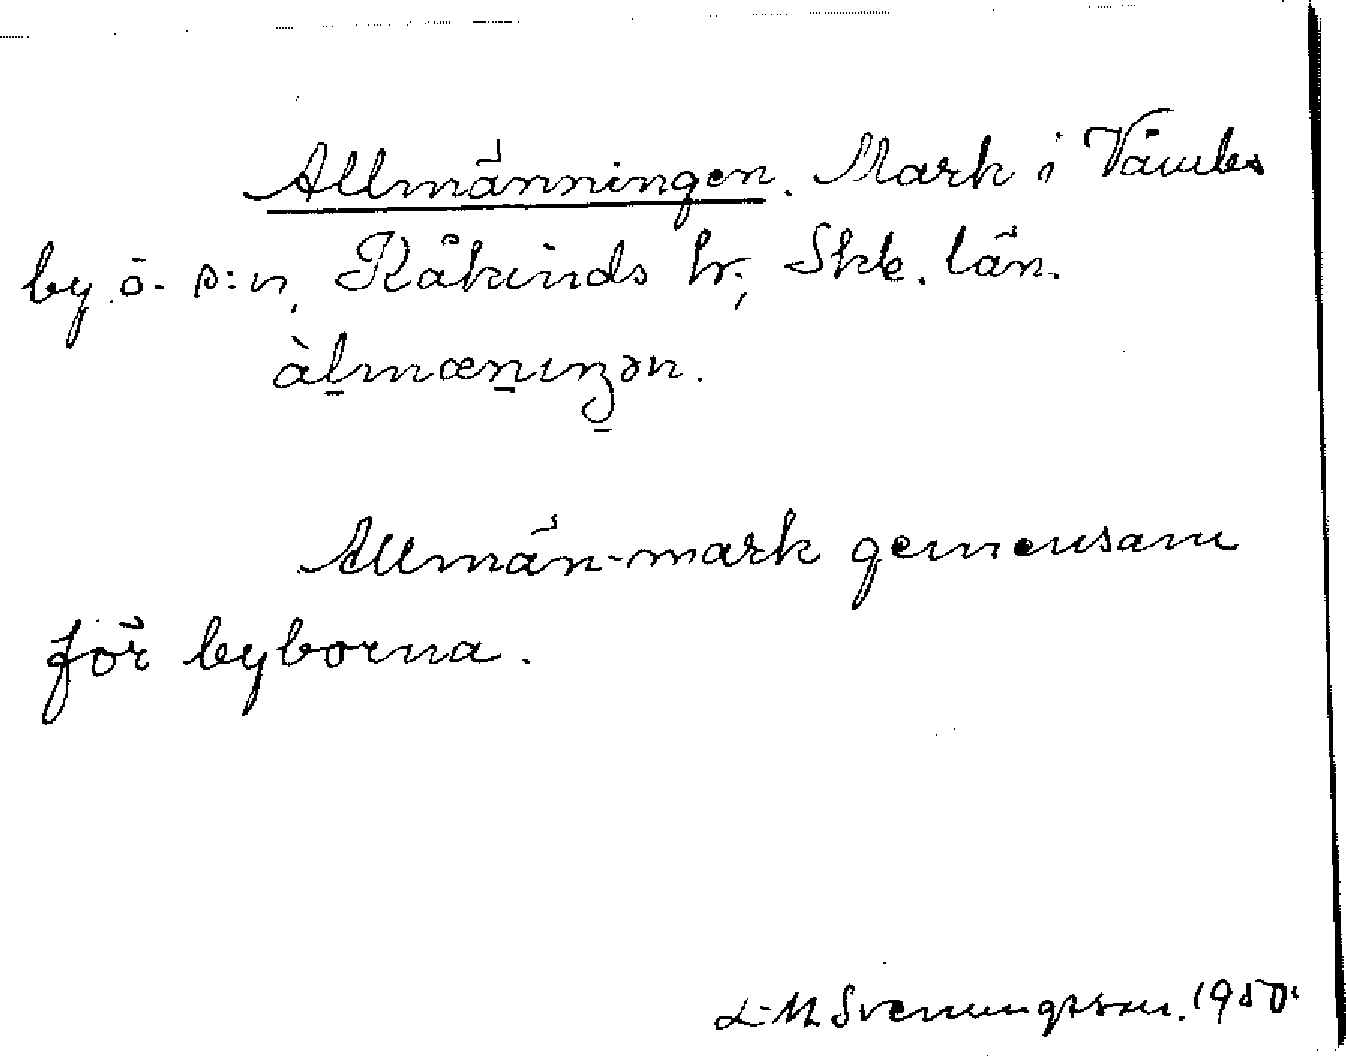 Allmänningen. Mark i Våmbs
by o. s:n, Kåkinds hr., Skb. län.
àlmænıŋən.
Allmän-mark gemensam
för byborna.
L-M. Svenungsson. 1950.